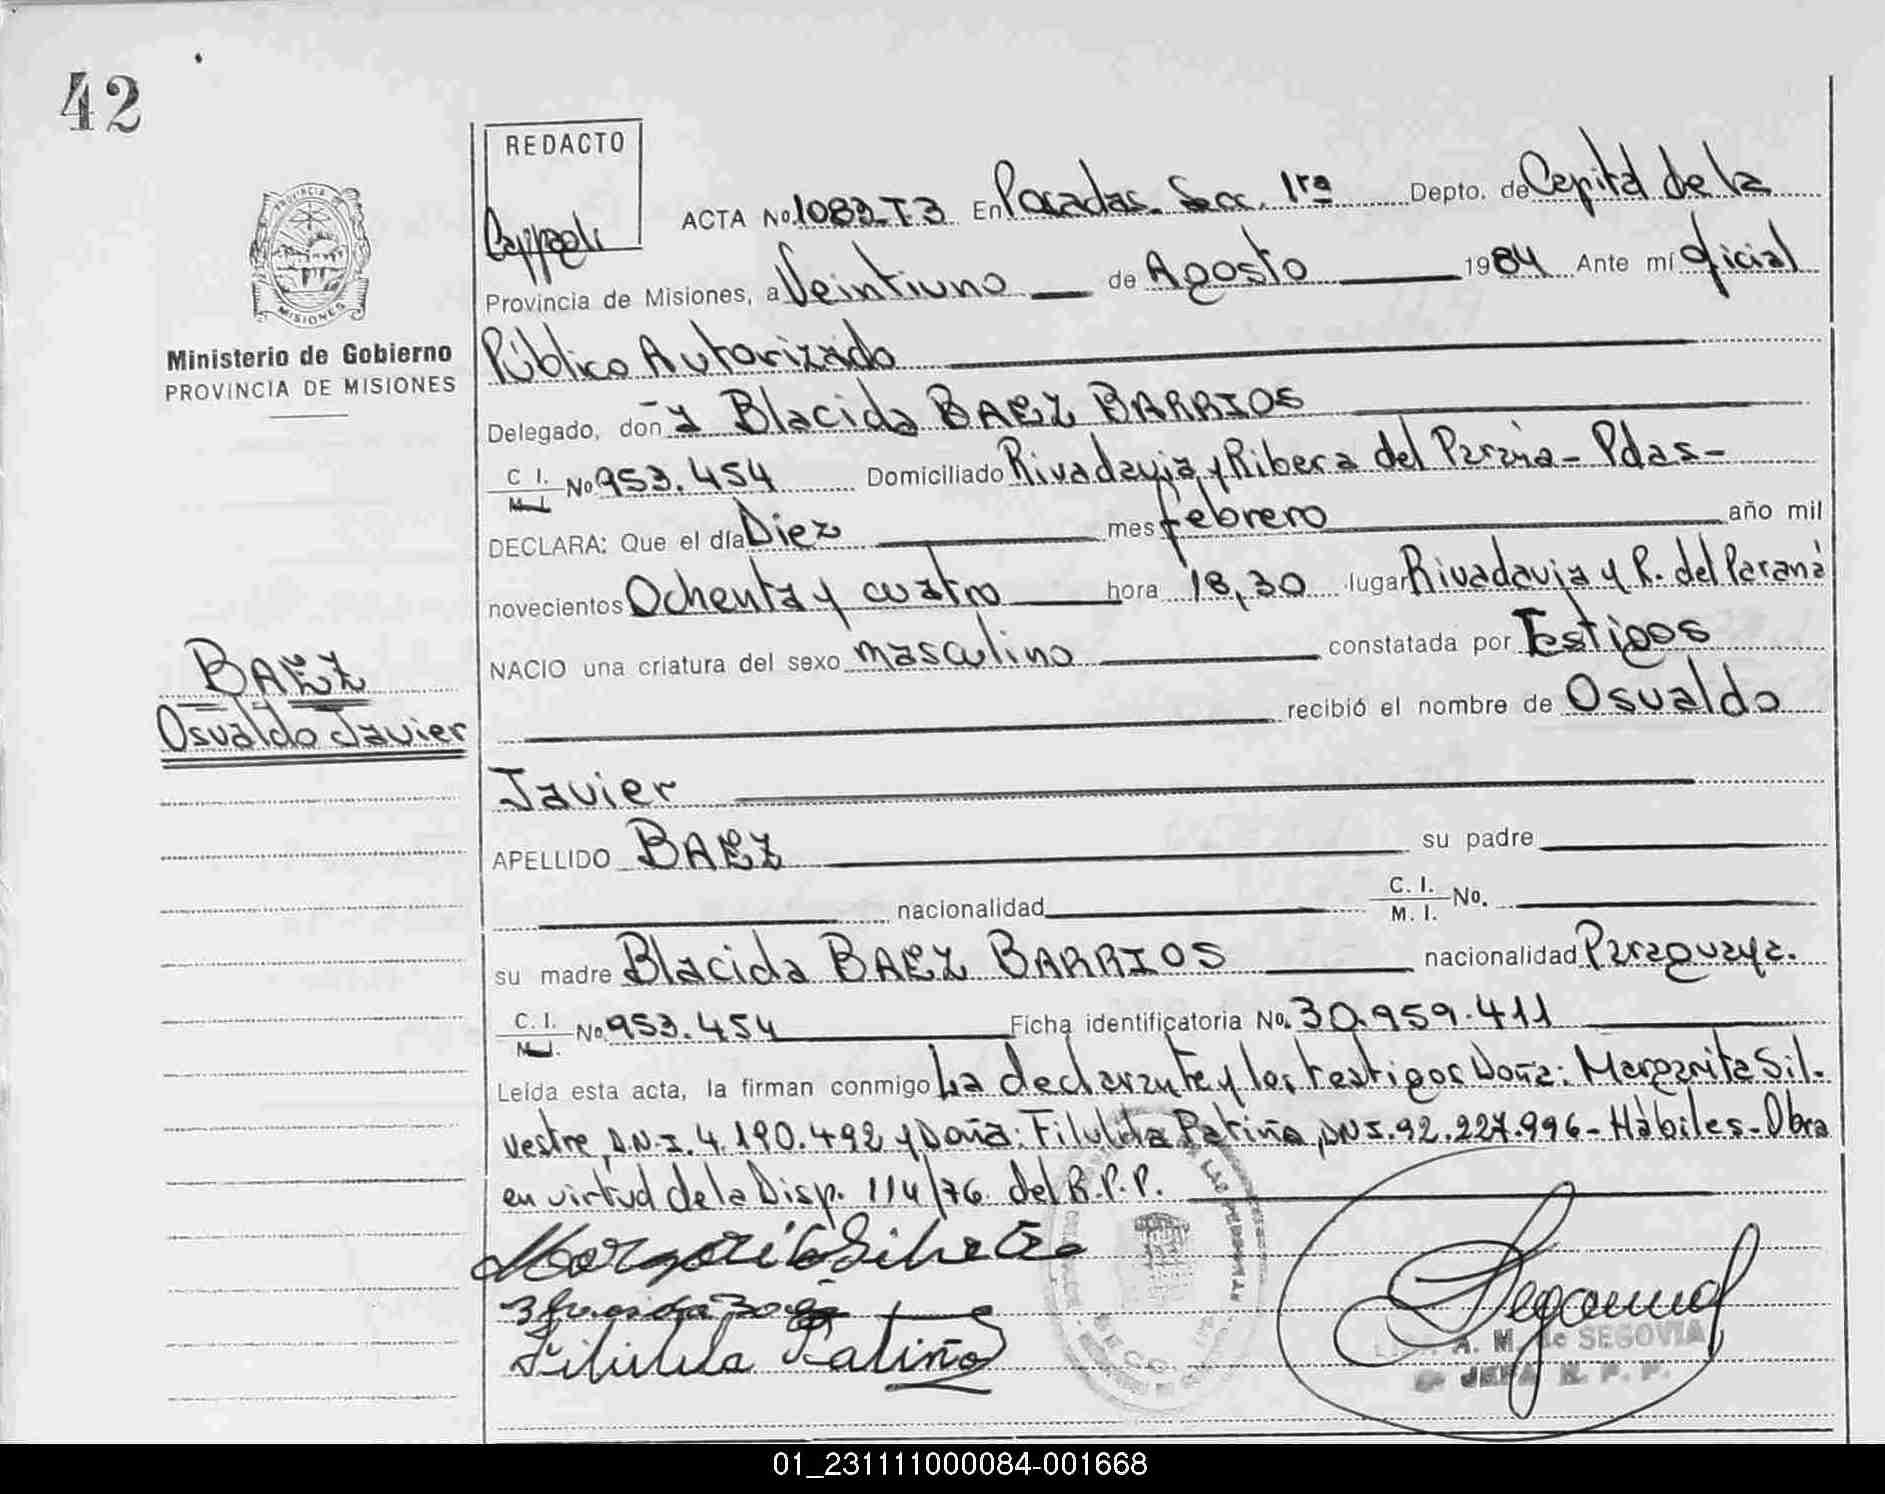 42
REDACTO
ACTA No. 1082 T3 En Posadas Secc. 1ra Depto. de Capital de la
Provincia de Misiones, a Veintiuno de Agosto 1984 Ante mí Oficial
PROVINCIA
MISIONES
Ministerio de Gobierno
PROVINCIA DE MISIONES
Público Autorizado
Delegado, don~a Blacida BAEZ BARRIOS
C I. M.I. No 953.454 Domiciliado Rivadavia y Ribera del Paraná - Pdas-
DECLARA: Que el día Diez mes febrero año mil
novecientos Ochenta y cuatro hora 18,30 lugar Rivadavia y R. del Paraná
NACIO una criatura del sexo masculino constatada por Testigos
recibió el nombre de Osvaldo
BAEZ
Osvaldo Javier
Javier
APELLIDO BAEZ su padre
nacionalidad C. I. M. I. No.
su madre Blacida BAEZ BARRIOS nacionalidad Paraguaya.
C. I. M.I. No. 953.454 Ficha identificatoria No. 30.959.411
Leída esta acta, la firman conmigo La declarante y los testigos Doña: Margarita Sil-
vestre, D.N.I. 4.190.492 y Doña: Filulila Patiño, DNI. 92.227.996 - Hábiles - Obra
en virtud de la Disp. 114/76 del R.P.P.
Margarita Silvestre
Filulila Patiño
A. M. de SEGOVIA
JEFA R. P. P.
01_231111000084-001668